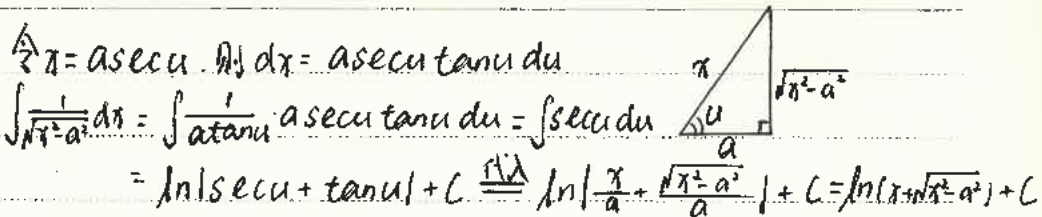 令x=asecu.则dx=asecutanudu
∫1/√(x²-a²)dx=∫1/(atanu)·asecutanudu=∫secudu
=ln|secu+tanu|+C 代入= ln|x/a+√(x²-a²)/a|+C=ln(x+√(x²-a²))+C
x
√(x²-a²)
u
a